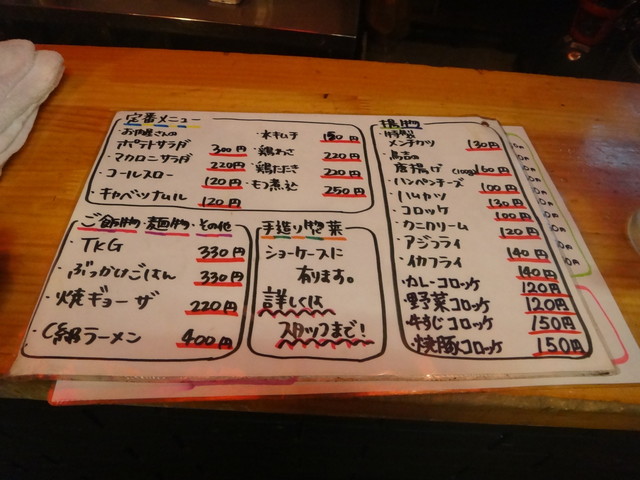 定番メニュー
お肉屋さんの
ポテトサラダ 300円
マカロニサラダ 220円
コールスロー 120円
・キャベツナムル 120円
・水キムチ 150円
・鶏わさ 220円
・鶏たたき 220円
・モツ煮込 250円
ご飯物・麺物・その他
・TKG 330円
・ぶっかけごはん 330円
・焼ギョーザ 220円
・C級ラーメン 400円
手造り惣菜
ショーケースに
有ります。
詳しくは
スタッフまで!
揚物
・特製
メンチカツ 130円
・鳥志の
唐揚げ (100g) 160円
・ハンペンチーズ 100円
・ハムカツ 130円
・コロッケ 100円
・カニクリーム 120円
・アジフライ 140円
・イカフライ 140円
・カレーコロッケ 120円
・野菜コロッケ 120円
・牛すじコロッケ 150円
・焼豚コロッケ 150円